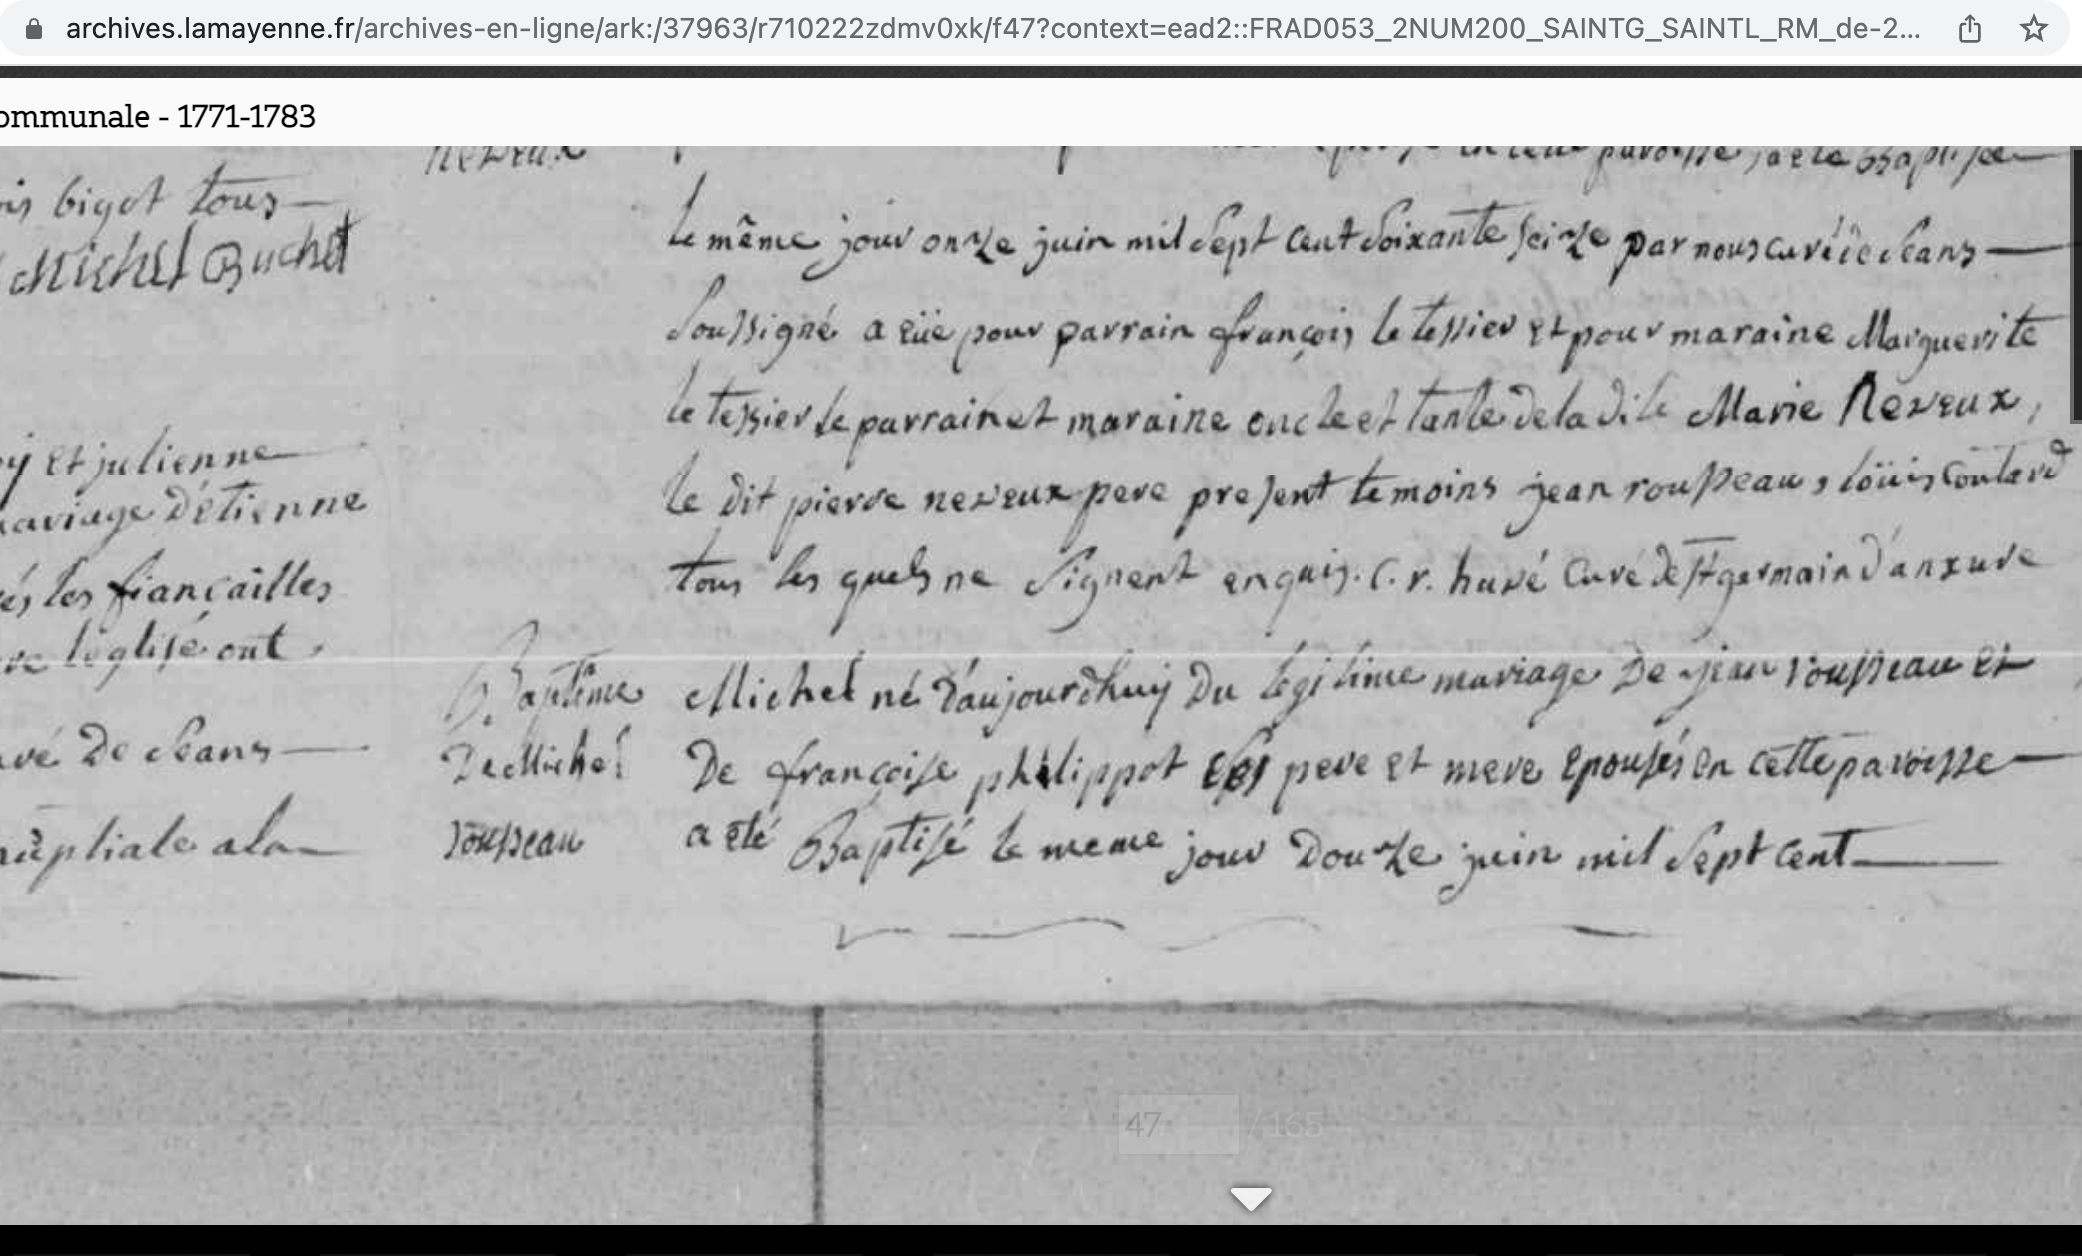 archives.lamayenne.fr/archives-en-ligne/ark:/37963/r710222zdmv0xk/f47?context=ead2::FRAD053_2NUM200_SAINTG_SAINTL_RM_de-2...
ommunale - 1771-1783
is bigot tous
Michel Buchet
et julienne
mariage d'étienne
és les fiançailles
l'église ont
vé De Ceans
nuptiale a la
neveux
paroisse, a été Baptisée
le même jour onze juin mil Sept Cent Soixante seize par nous curé de Ceans
Soussigné a eüe pour parrain françois le tessier et pour maraine Marguerite
le tessier le parrain et maraine oncle et tante de la dite Marie Neveux,
le dit pierre neveux pere present temoins jean rousseau, loüis Coutard
tous les quels ne Signent enquis. C. r. huvé Curé de St germain d'anxure
Baptême
De Michel
rousseau
Michel né d'aujourdhuy Du legitime mariage De jean rousseau et
De françoise philippot Ses pere et mere epousés en cette paroisse
a été Baptisé le meme jour Douze juin mil Sept Cent
47 / 165